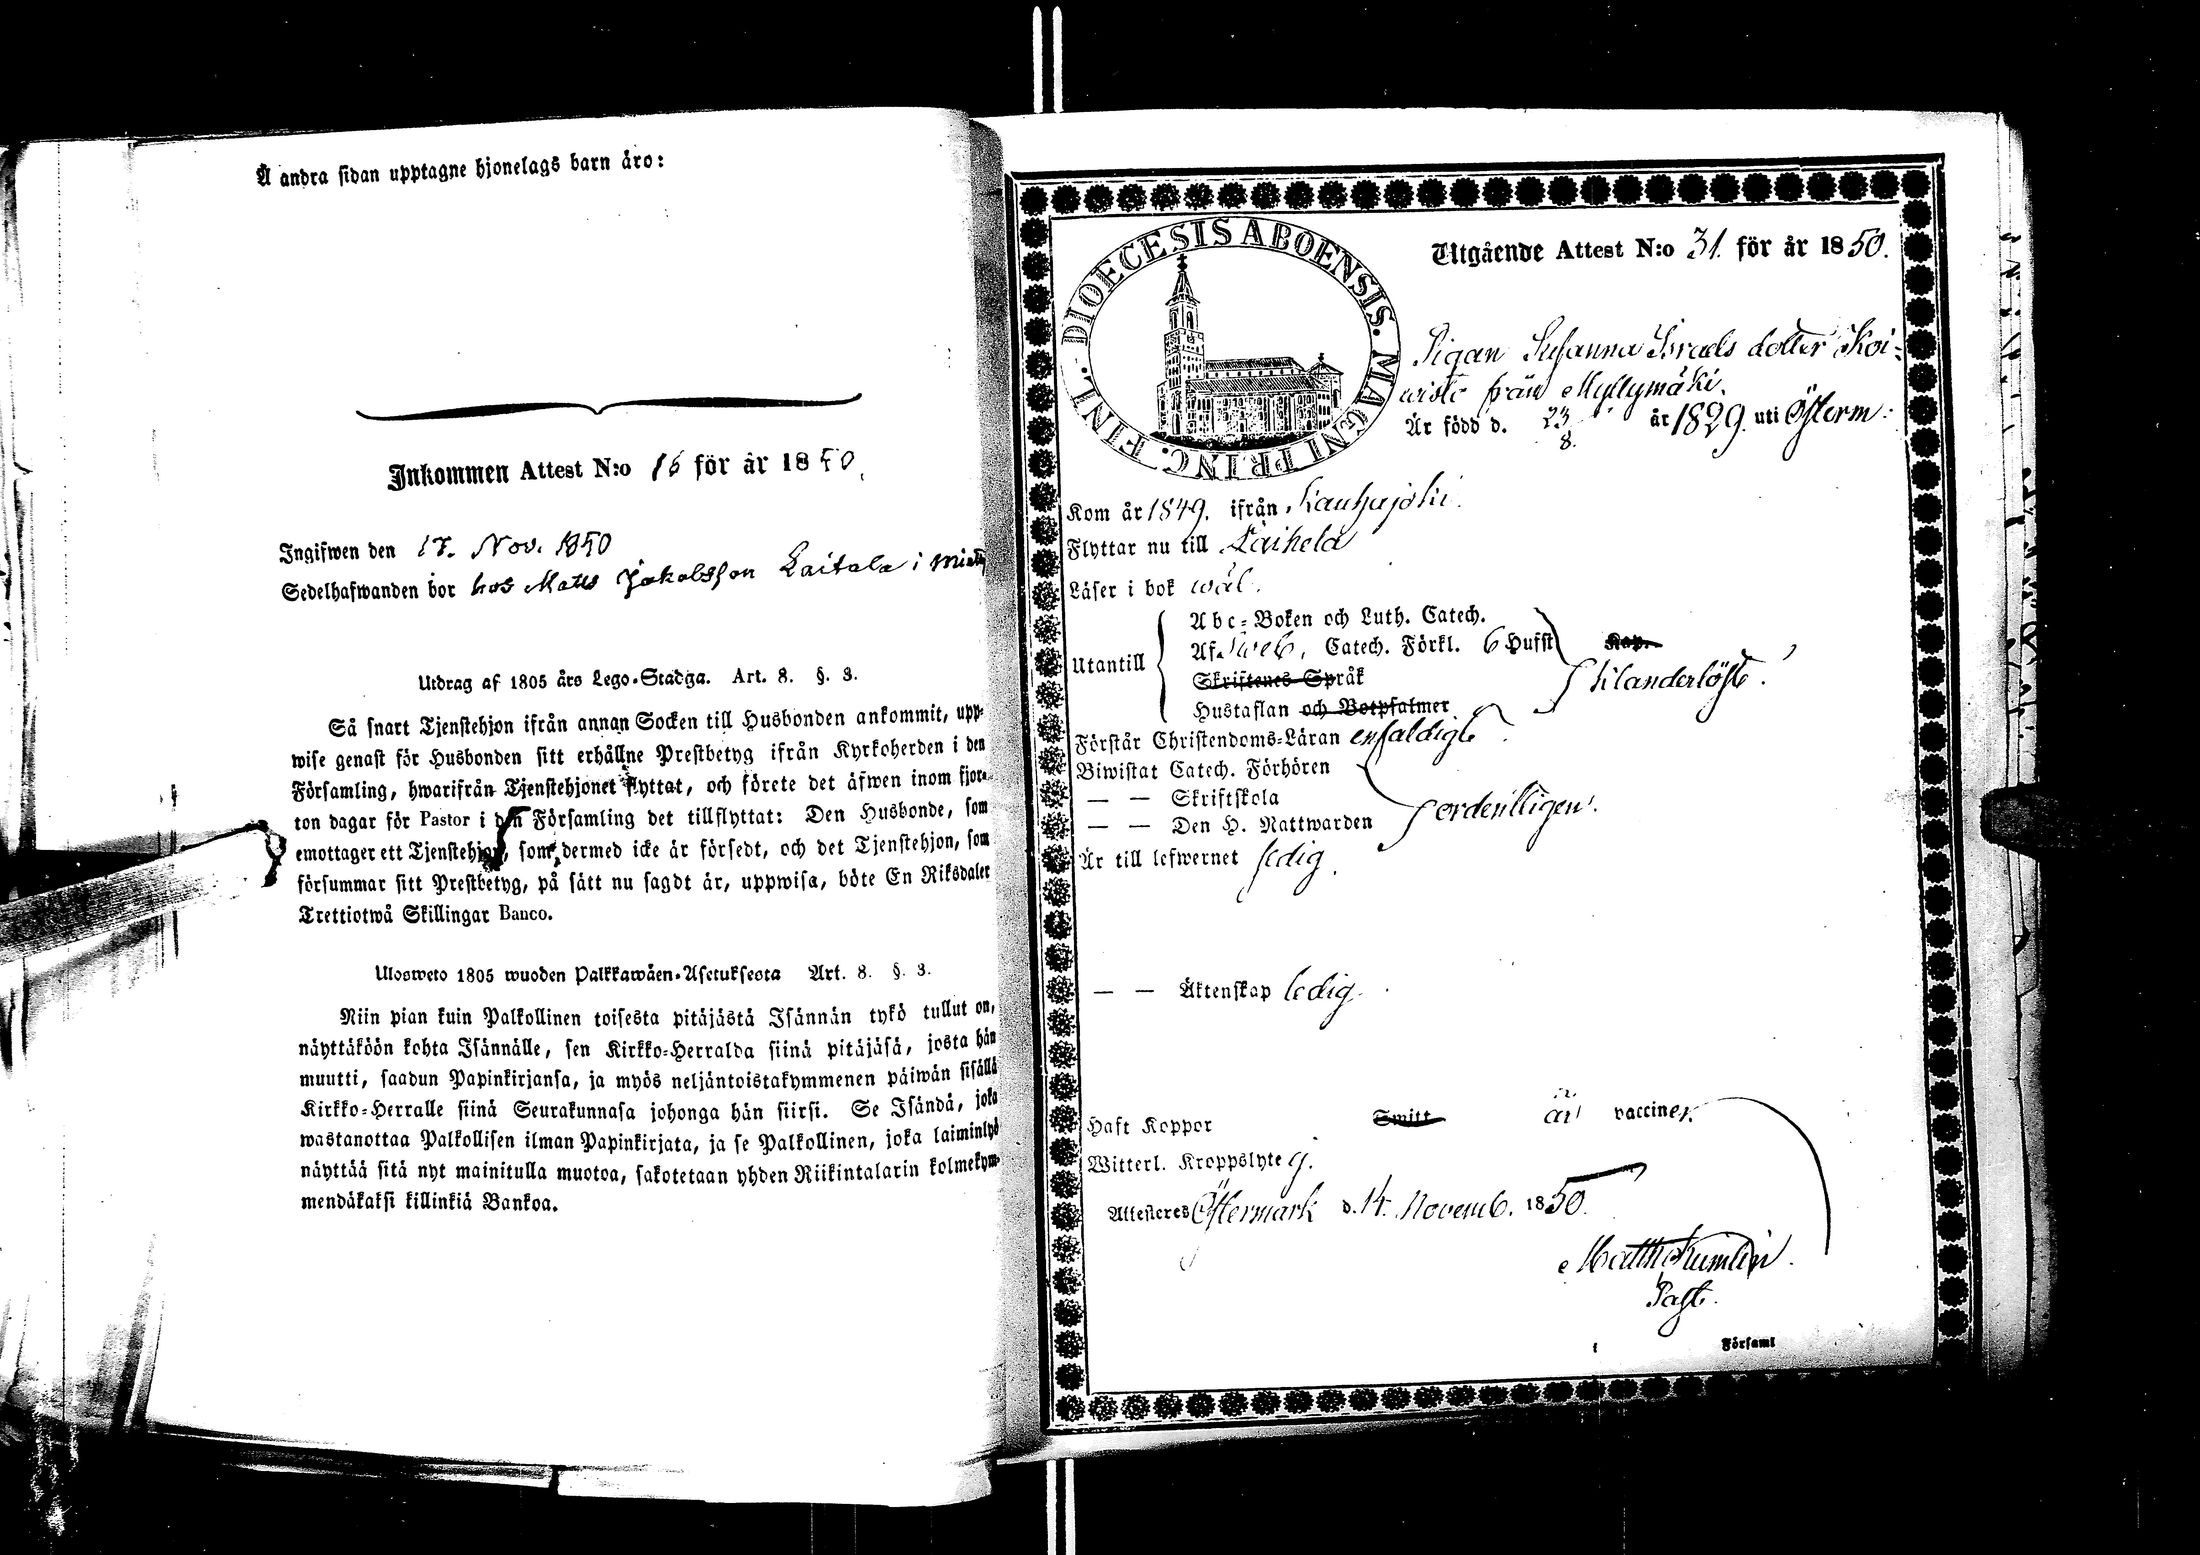 Å andra sidan upptagne hjonelags barn äro:
Inkommen Attest N:o 16 för år 1850.
Ingifwen den 17. Nov. 1850
Sedelhafwanden bor hos Matts Jakobsson Laitala i
Utdrag af 1805 års Lego-Stadga. Art. 8. §. 3.
Så snart Tjenstehjon ifrån annan Socken till Husbonden ankommit, upp-
wise genast för Husbonden sitt erhållne Prestbetyg ifrån Kyrkoherden i den
Församling, hwarifrån Tjenstehjonet flyttat, och förete det äfwen inom fjor-
ton dagar för Pastor i den Församling det tillflyttat: Den Husbonde, som
emottager ett Tjenstehjon, som dermed icke är försedt, och det Tjenstehjon, som
försummar sitt Prestbetyg, på sätt nu sagdt är, uppwisa, böte En Riksdaler
Trettiotwå Skillingar Banco.
Ulosweto 1805 wuoden Palkkawäen-Asetuksesta Art. 8. §. 3.
Niin pian kuin Palkollinen toisesta pitäjästä Isännän tykö tullut on,
näyttäköön kohta Isännälle, sen Kirkko-Herralda siinä pitäjäsä, josta hän
muutti, saadun Papinkirjansa, ja myös neljäntoistakymmenen päiwän sisällä
Kirkko-Herralle siinä Seurakunnasa johonga hän siirsi. Se Isändä, joka
wastanottaa Palkollisen ilman Papinkirjata, ja se Palkollinen, joka laiminlyö
näyttää sitä nyt mainitulla muotoa, sakotetaan yhden Riikintalarin kolmekym-
mendäkaksi killinkiä Bankoa.
DIOECESIS ABOENSIS. MAGNI PRINC. FINL.
Utgående Attest N:o 31. för år 1850.
Pigan Susanna Israels dotter Koi-
wisto från Myllymäki.
Är född d. 23/8. år 1829. uti Österm:
Kom år 1849. ifrån Kauhajoki.
Flyttar nu till Laihela
Läser i bok wäl.
Utantill
Abc-Boken och Luth. Catech.
Af Sweb. Catech. Förkl. 6 Hufst Kap.
Skriftenes Språk
Hustaflan och Botpsalmer
klanderlöst.
Förstår Christendoms-Läran enfaldigt.
Biwistat Catech. Förhören
— — Skriftskola
— — Den H. Nattwarden
ordentligen.
Är till lefwernet ledig.
— — Äktenskap ledig.
Haft Koppor Smitt är vacciner.
Witterl. Kroppslyte ej.
Attesteres Östermark d. 14. Novemb. 1850.
Matth Kumlin.
Past.
Församl